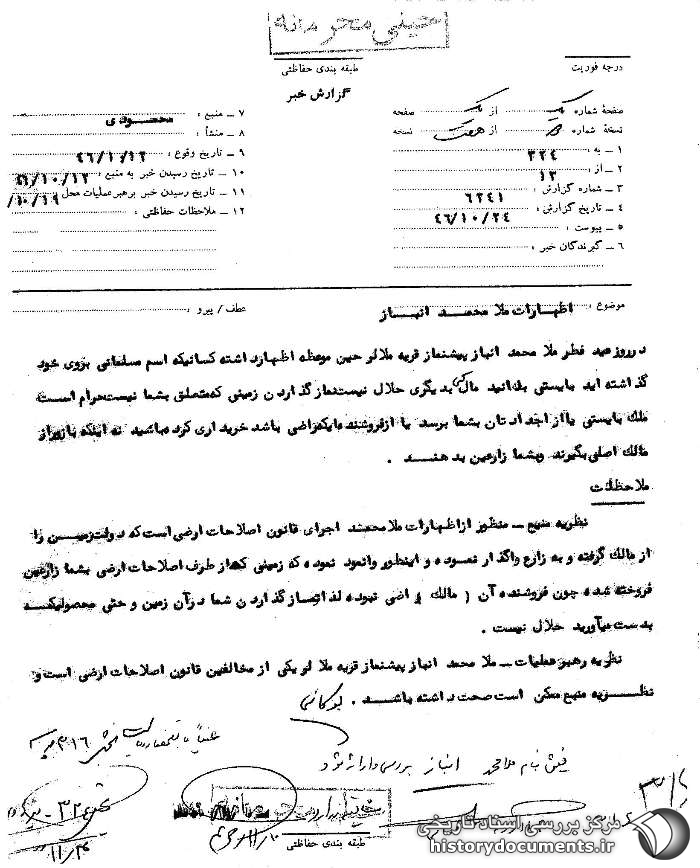 خیلی محرمانه
طبقه بندی حفاظتی
درجه فوریت
گزارش خبر
صفحهٔ شماره یک از یک صفحه
نسخهٔ شماره از هفت نسخه
۱ ــ به : ۳۲۴
۲ ــ از : ۱۲
۳ ــ شماره گزارش : ۶۲۴۱
۴ ــ تاریخ گزارش : ۴۶/۱۰/۲۴
۵ ــ پیوست :
۶ ــ گیرندگان خبر :
۷ ــ منبع : محمودی
۸ ــ منشأ :
۹ ــ تاریخ وقوع : ۴۶/۱۰/۱۲
۱۰ ــ تاریخ رسیدن خبر به منبع : ۴۶/۱۰/۱۲
۱۱ ــ تاریخ رسیدن خبر برهبر عملیات محل : /۱۰/۱۹
۱۲ ــ ملاحظات حفاظتی :
موضوع : اظهارات ملا محمد انباز
عطف / پیرو :
در روز عید فطر ملا محمد انباز پیشنماز قریه ملالو حین موعظه اظهار داشته کسانیکه اسم مسلمانی بروی خود
گذاشته اید بایستی بدانید مال کس دیگری حلال نیست نماز گذاردن زمینی که متعلق بشما نیست حرام است
ملک بایستی یا از اجدادتان بشما برسد یا از فروشنده ایکه راضی باشد خریداری کرده باشید نه اینکه بازور از
مالک اصلی بگیرند و بشما زارعین بدهند .
ملاحظات
نظریه منبع ــ منظور از اظهارات ملا محمد اجرای قانون اصلاحات ارضی است که دولت زمین را
از مالک گرفته و به زارع واگذار نموده و اینطور وانمود نموده که زمینی که از طرف اصلاحات ارضی بشما زارعین
فروخته شده چون فروشنده آن ( مالک ) راضی نبوده لذا نماز گذاردن شما در آن زمین و حتی محصولیکه
بدست میآورید حلال نیست .
نظریه رهبر عملیات ــ ملا محمد انباز پیشنماز قریه ملالو یکی از مخالفین قانون اصلاحات ارضی است و
نظریه منبع ممکن است صحت داشته باشد . بوکانی
بخش ۳۱۶
فیش بنام ملا محمد انباز بررسی و ارائه شود
طبقه بندی حفاظتی
مرکز بررسی اسناد تاریخی
historydocuments.ir